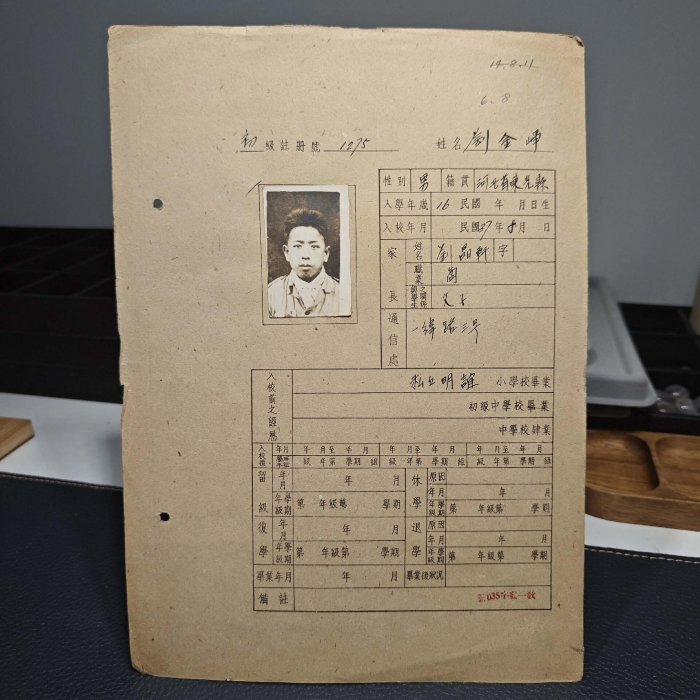 14.8.11
6.8
初級註冊號 1275 姓名 劉金
性別 男 籍貫 河北省東光縣
入學年歲 16 民國 年 月 日生
入校年月 民國37年8月 日
家長 姓名 劉品軒 字
職業 商
與學生之關係 父子
通信處 一緯路三号
入校前之經歷 私立明誼 小學校畢業
初級中學校畢業
中學校肄業
入校後 年月 年 月至 年 月 年 月至 年 月 年 月至 年 月
級 年第 學期 組 級 年第 學期 組 級 年第 學期 組
留級 年月 年 月 休學 原因
年月 年 月
年級學期 第 年級第 學期 年級學期 第 年級第 學期
復學 年月 年 月 退學 原因
年月 年 月
年級學期 第 年級第 學期 年級學期 第 年級第 學期
畢業年月 年 月 畢業後狀況
備註